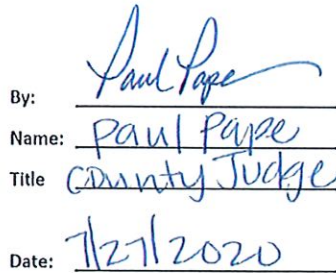 By: Paul Pape
Name: Paul Pape
Title County Judge
Date: 7/27/2020